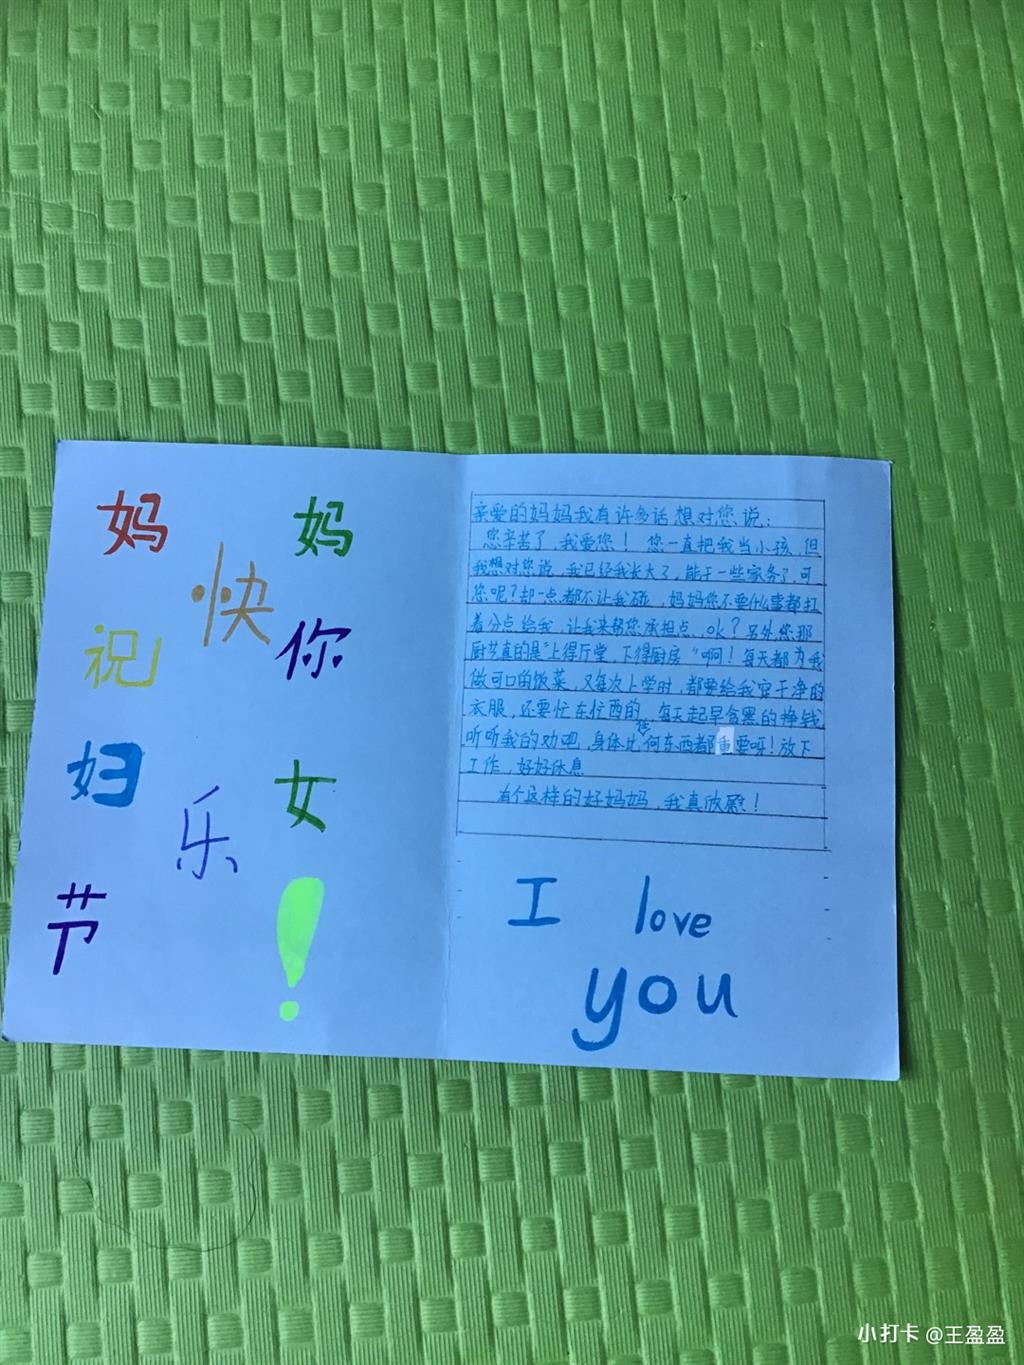 妈 妈
祝 你
妇 女
节
快
乐
！
亲爱的妈妈我有许多话想对您说：
您辛苦了，我爱您！您一直把我当小孩，但
我想对您说，我已经我长大了，能干一些家务了，可
您呢？却一点都不让我碰，妈妈您不要什么事都扛
着分点给我，让我来帮您承担点、ok？另外，您那
厨艺真的是“上得厅堂，下得厨房”啊！每天都为我
做可口的饭菜，又每次上学时，都要给我穿干净的
衣服，还要忙东忙西的，每天起早贪黑的挣钱
听听我的劝吧，身体比任何东西都重要呀！放下
工作，好好休息
有个这样的好妈妈，我真欣慰！
I love
you
小打卡 @王盈盈